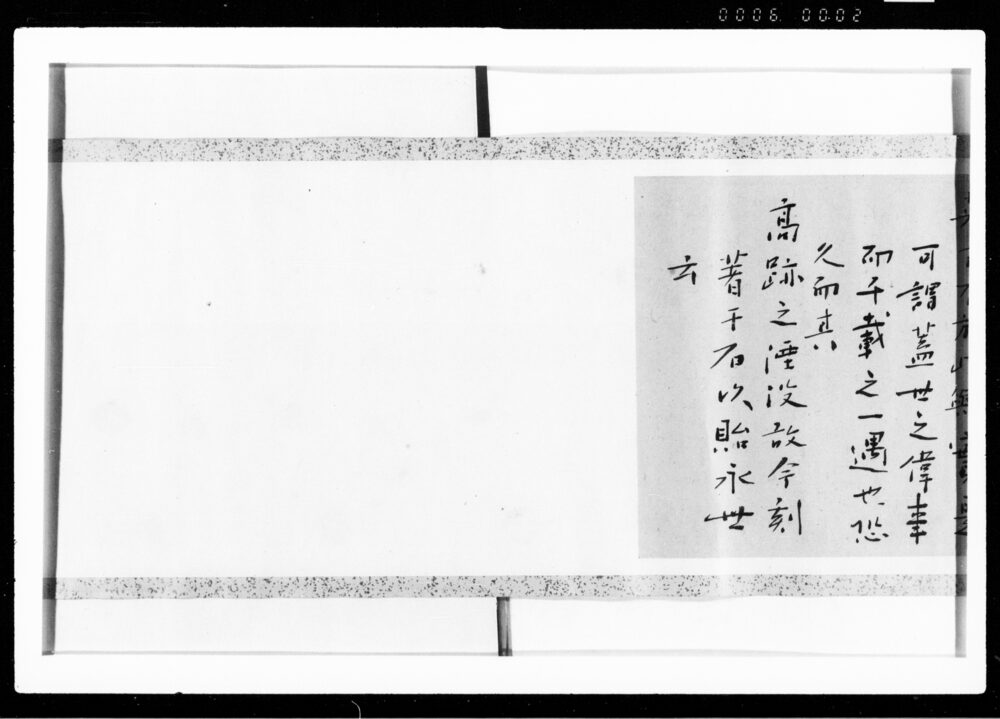 可謂蓋世之偉事
而千載之一遇也恐
久而其
高跡之湮没故今刻
著于石以貽永世
云
0006 00.02